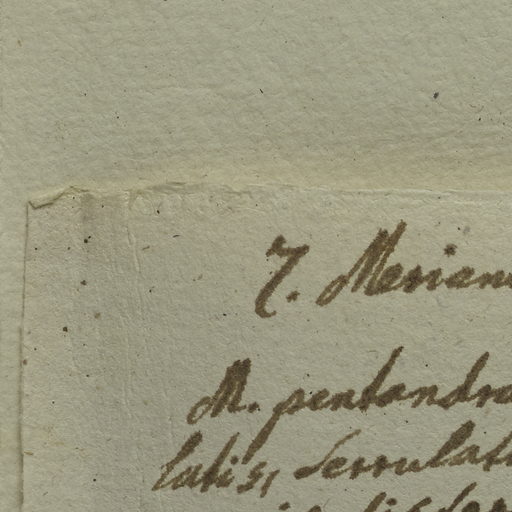 7. Meriani
M. pentandra
latis, serrulat